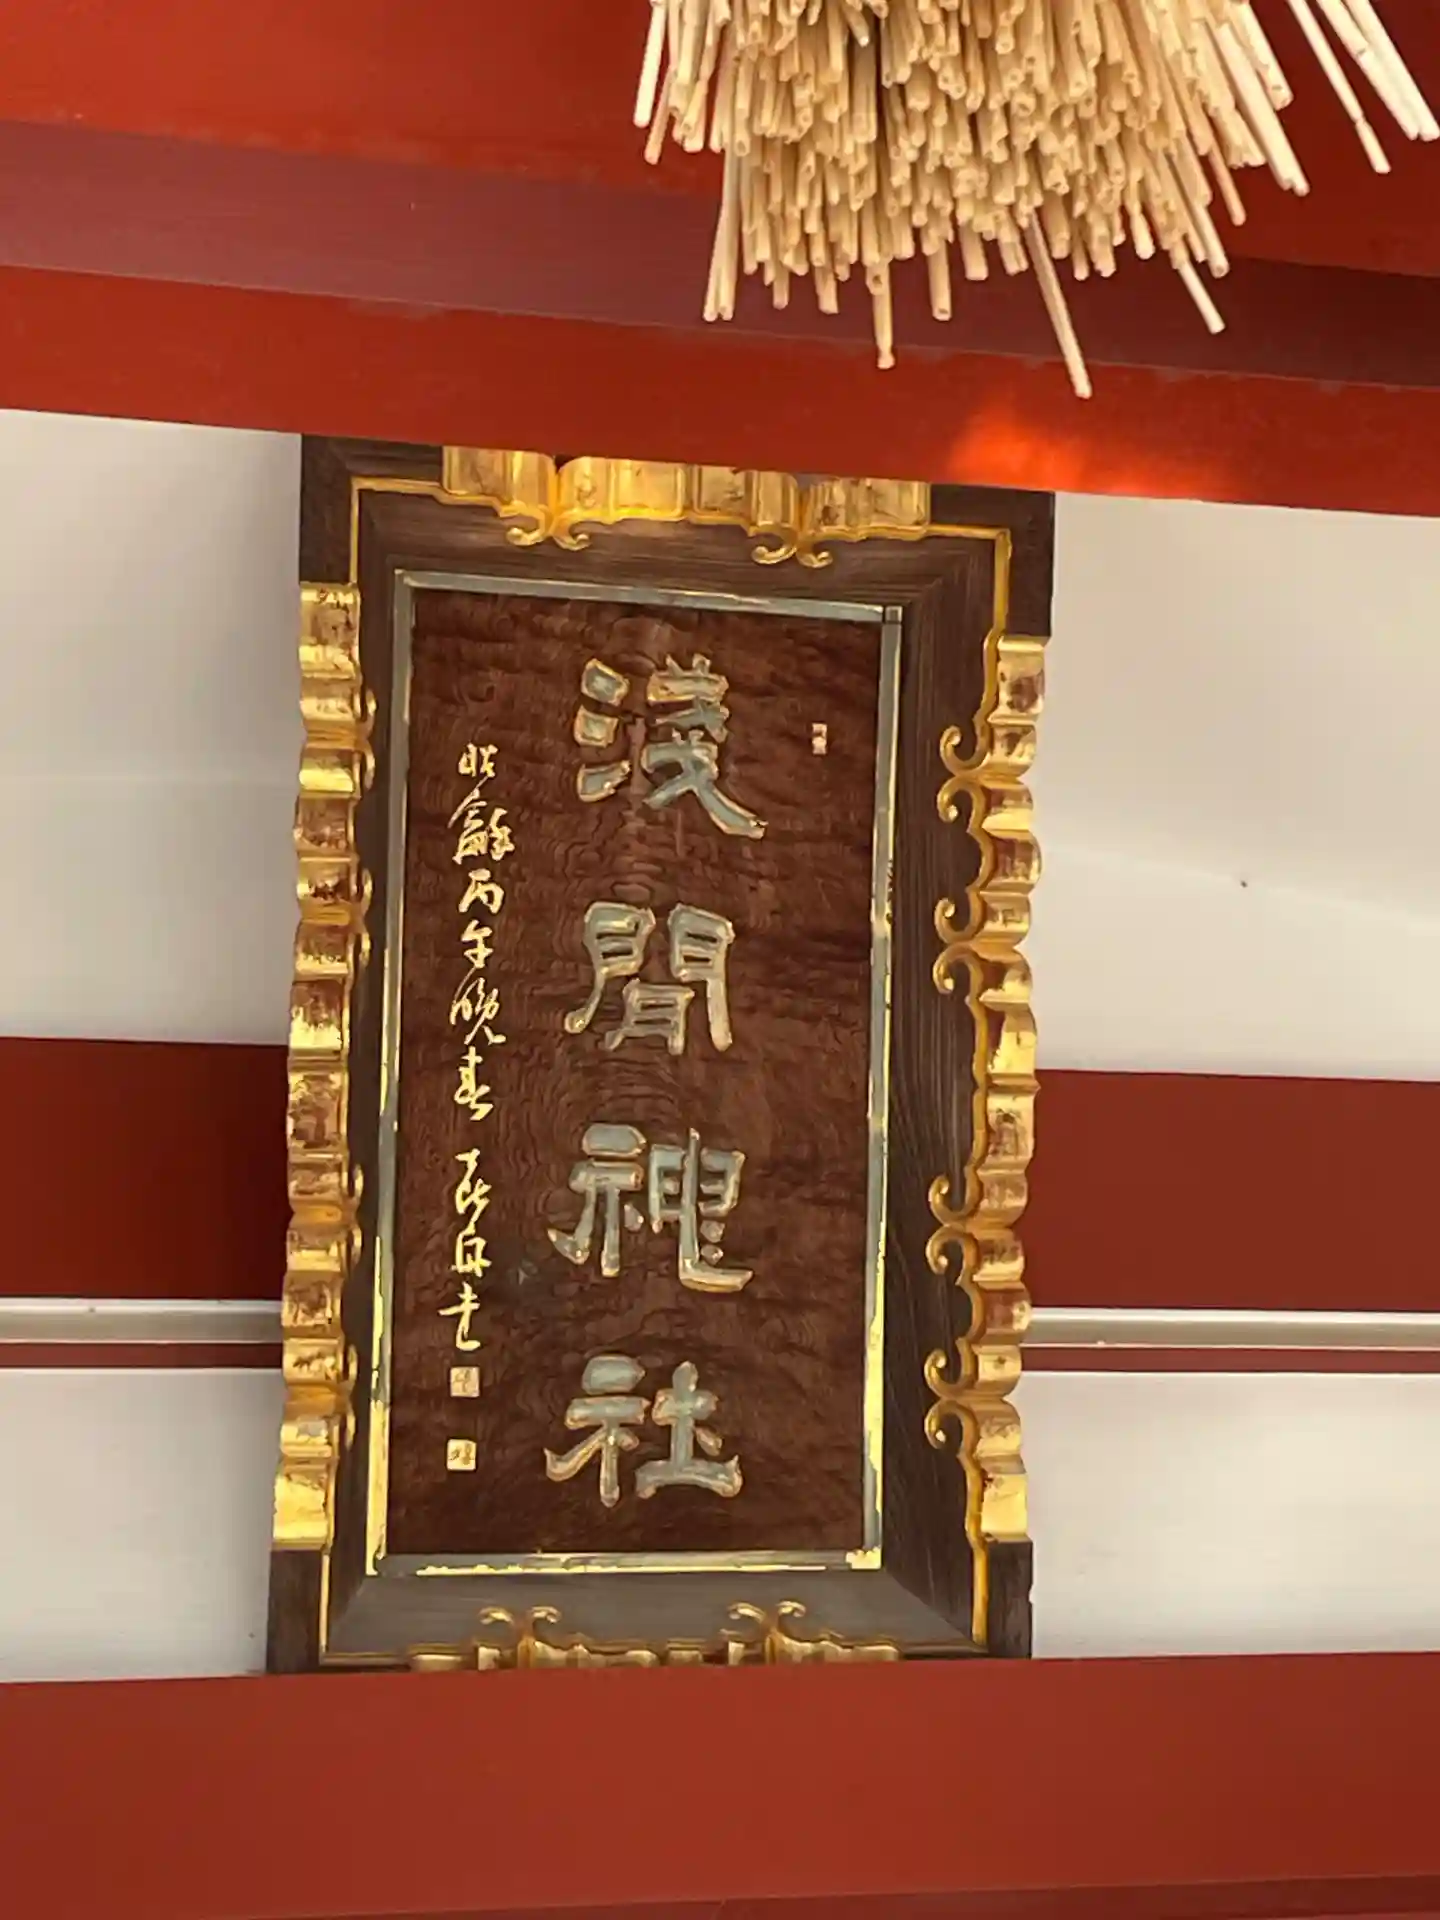 淺間神社
昭龢丙午晩春